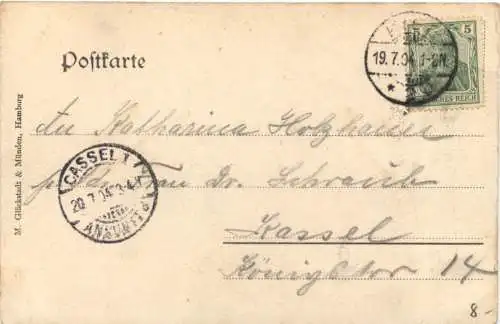 Postkarte
5
19.7.04. 1-2N.
DEUTSCHES REICH
An Katharina Holzhauer
CASSEL 1
20.7.04. 3-4
ANKUNFT
Frau Dr. Schraub
Kassel
Königstor 14
M. Glückstadt & Münden, Hamburg
8